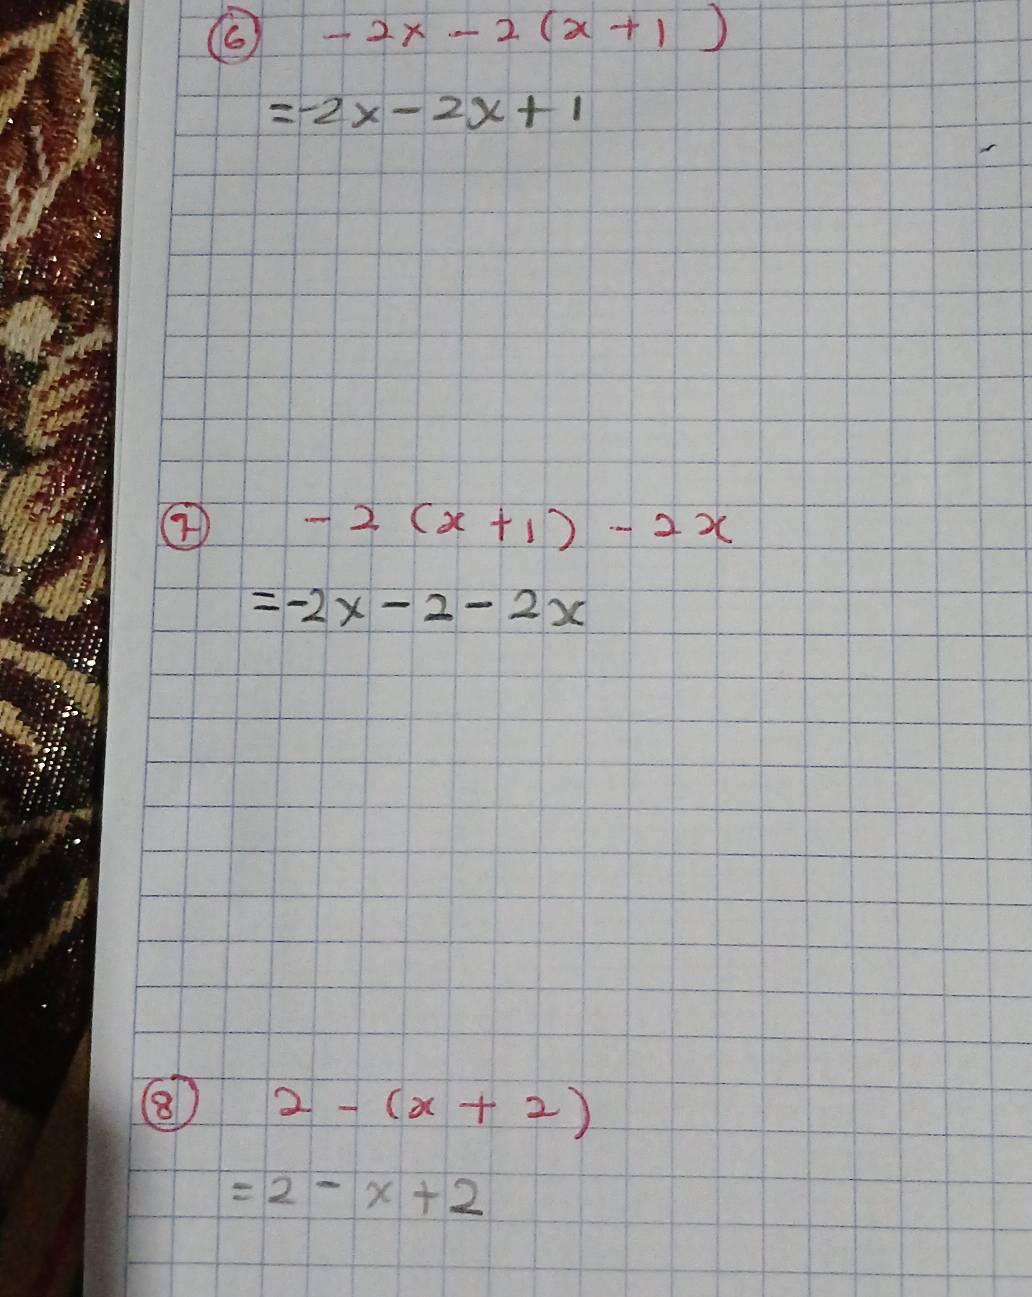 ⑥ -2x-2(x+1)
=-2x-2x+1
⑦ -2(x+1)-2x
=-2x-2-2x
⑧ 2-(x+2)
=2-x+2